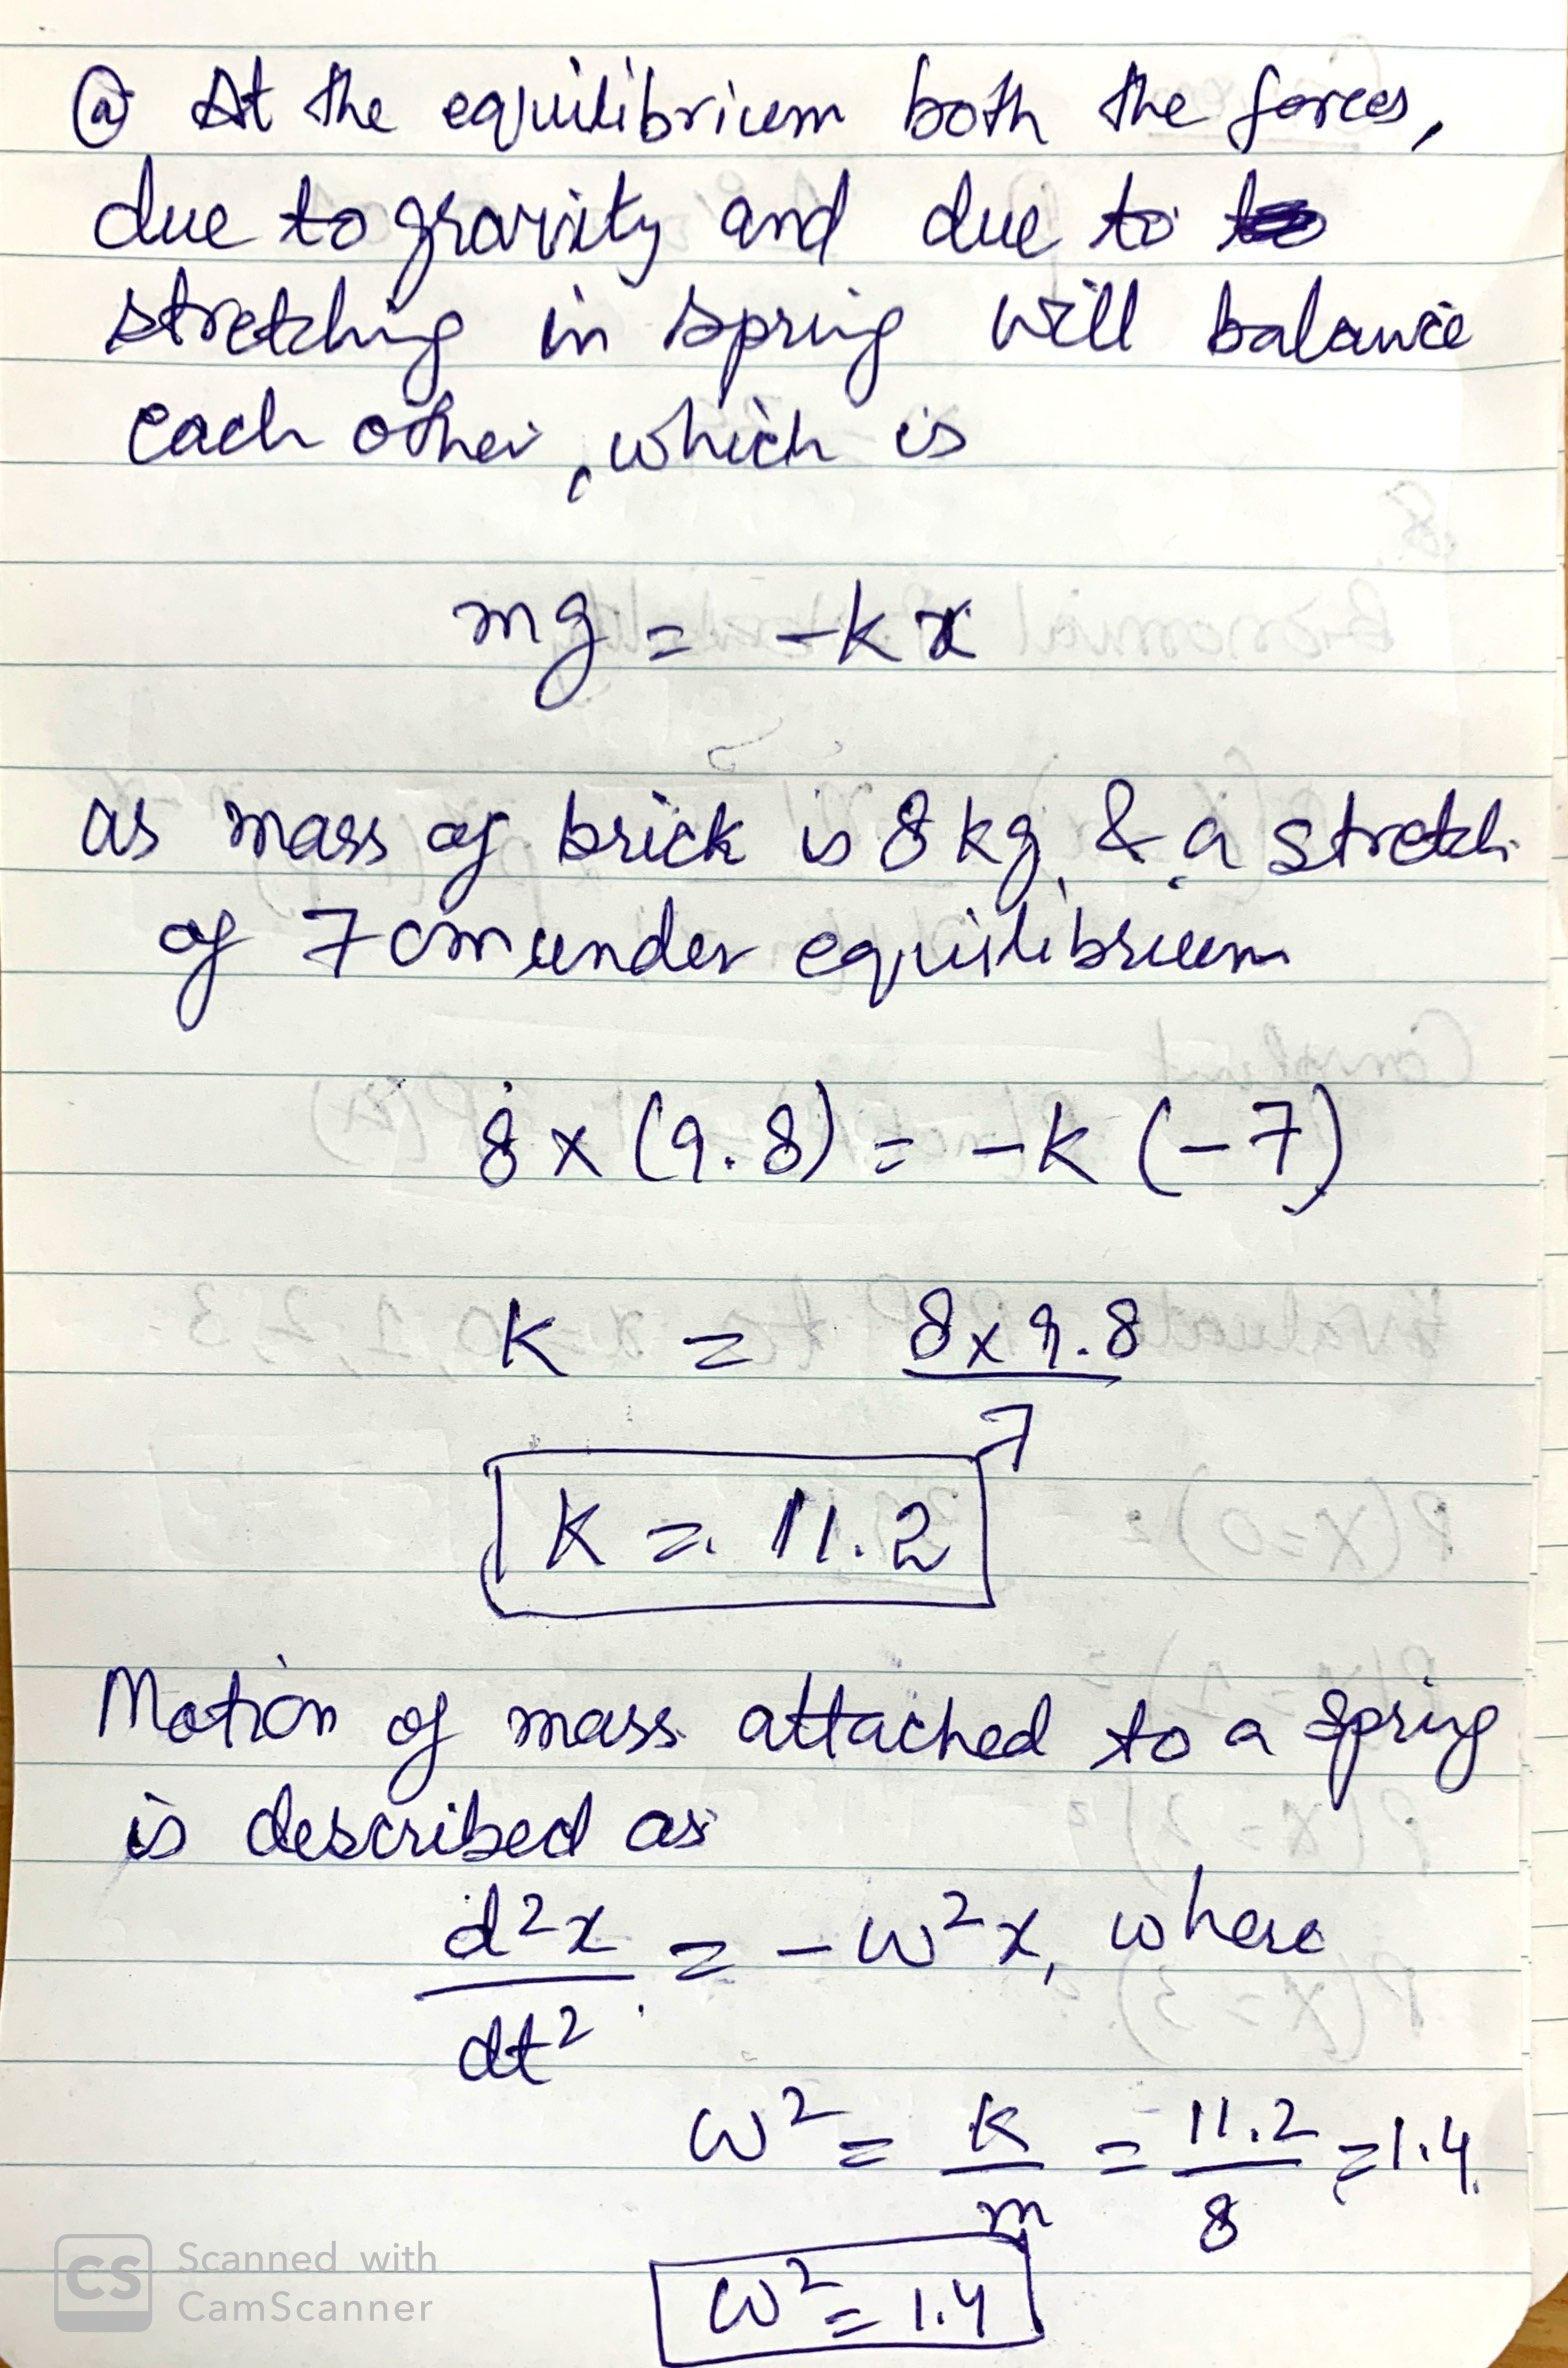 ⓐ At the equilibrium both the forces,
due to gravity and due to
stretching in spring will balance
each other, which is
mg = -kx
as mass of brick is 8kg & a stretch
of 7cm under equilibrium
8 x (9.8) = -k (-7)
k = 8x9.8
7
k = 11.2
Motion of mass attached to a spring
is described as
d²x = -ω²x, where
dt²
ω² = k = 11.2 = 1.4
m 8
ω² = 1.4
CS Scanned with
CamScanner